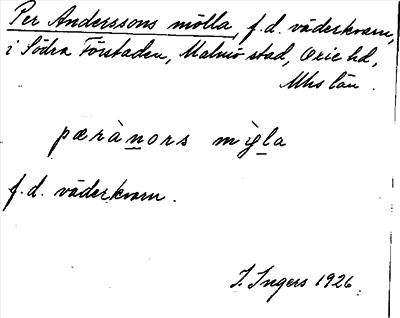 Per Anderssons mölla, f.d. väderkvarn,
i Södra Förstaden, Malmö stad, Oxie hd,
Mhs län.
pærànors mỳgla
f.d. väderkvarn.
I. Ingers 1926.